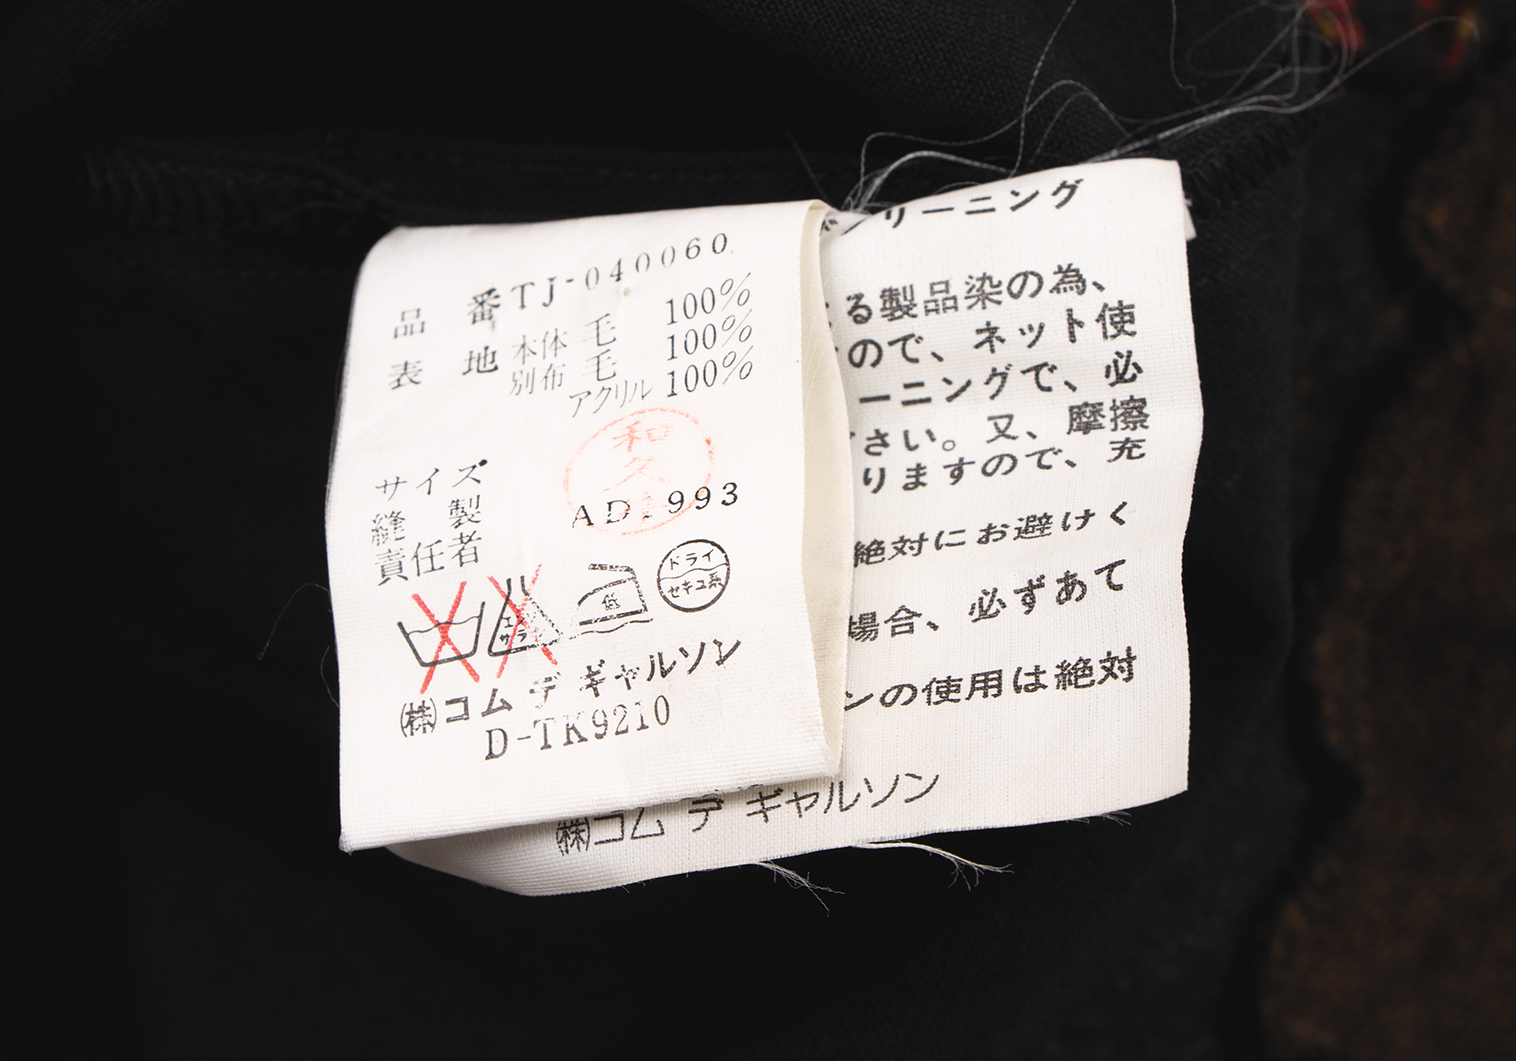 品番 TJ-040060
表地 本体 毛 100%
別布 毛 100%
アクリル 100%
和久
サイズ
縫製
責任者
AD1993
エンソ
サラシ
低
ドライ
セキユ系
㈱コム デ ギャルソン
D-TK9210
リーニング
る製品染の為、
ので、ネット使
ーニングで、必
さい。又、摩擦
りますので、充
絶対にお避けく
場合、必ずあて
ンの使用は絶対
㈱コム デ ギャルソン